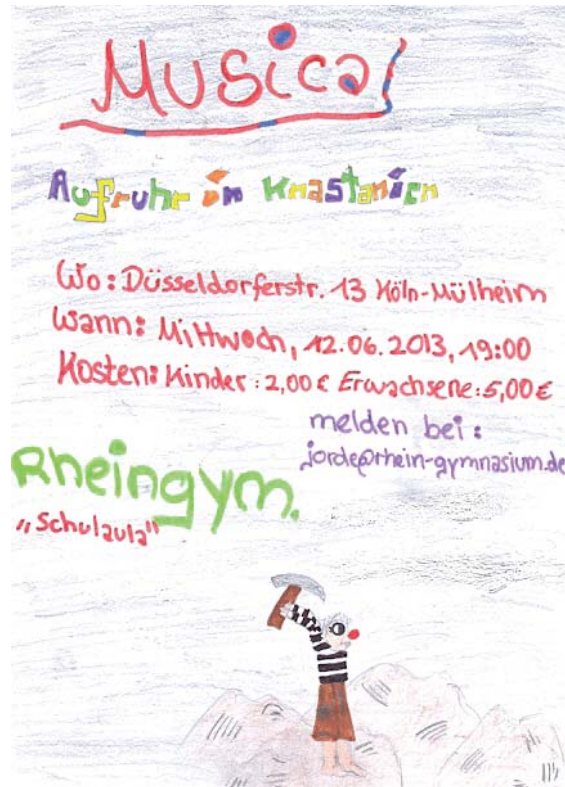 Musical
Aufruhr in Knastanien
Wo: Düsseldorferstr. 13 Köln-Mülheim
Wann: Mittwoch, 12.06.2013, 19:00
Kosten: Kinder: 2,00 € Erwachsene: 5,00 €
melden bei:
jorde@rhein-gymnasium.de
Rheingym.
„Schulaula"